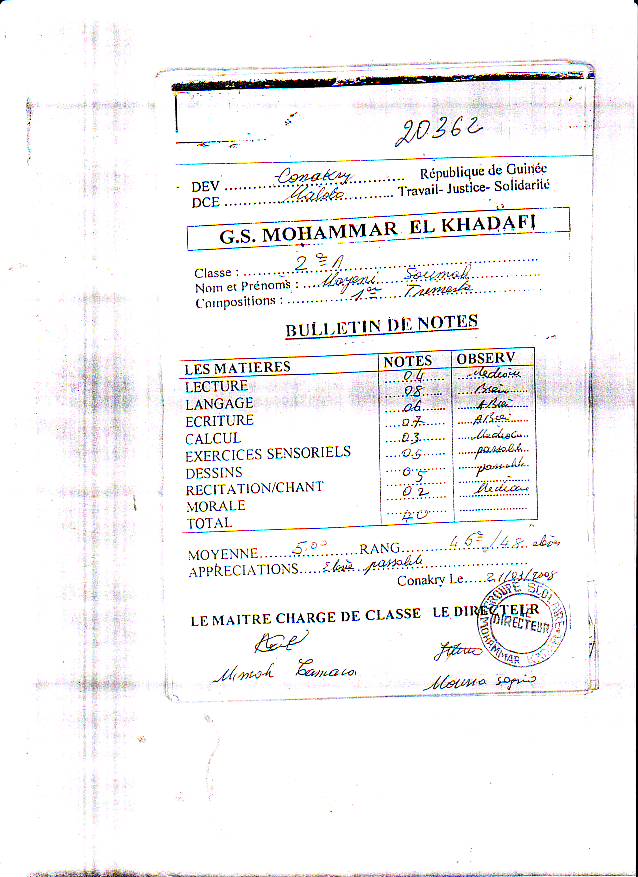 20362
DEV ........ Conakry ........ République de Guinée
DCE ........ Matoto ........ Travail- Justice- Solidarité
G.S. MOHAMMAR EL KHADAFI
Classe : ........ 2è A ........
Nom et Prénoms : ........ Soumah ........
Compositions : ........ 1er ........
BULLETIN DE NOTES
LES MATIERES NOTES OBSERV
LECTURE 04 Mediocre
LANGAGE 08 Bien
ECRITURE 06 ABien
CALCUL 07 ABien
EXERCICES SENSORIELS 03 Mediocre
DESSINS 05 passable
RECITATION/CHANT 05 passable
MORALE 02 Mediocre
TOTAL 40
MOYENNE ........ 5.00 ........ RANG ........ 45è/48
APPRECIATIONS ........ Elève passable
Conakry Le ........ 21/03/2008
LE MAITRE CHARGE DE CLASSE LE DIRECTEUR
GROUPE SCOLAIRE MOHAMMAR
LE DIRECTEUR
Camara
Moussa